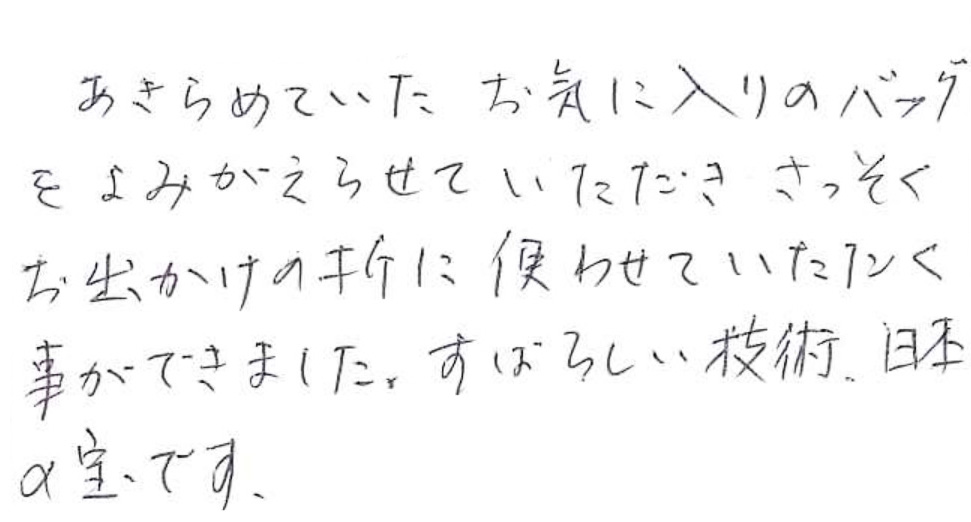 あきらめていた お気に入りのバッグ
をよみがえらせていただき さっそく
お出かけの折に使わせていただく
事ができました。すばらしい技術、日本
の宝です、